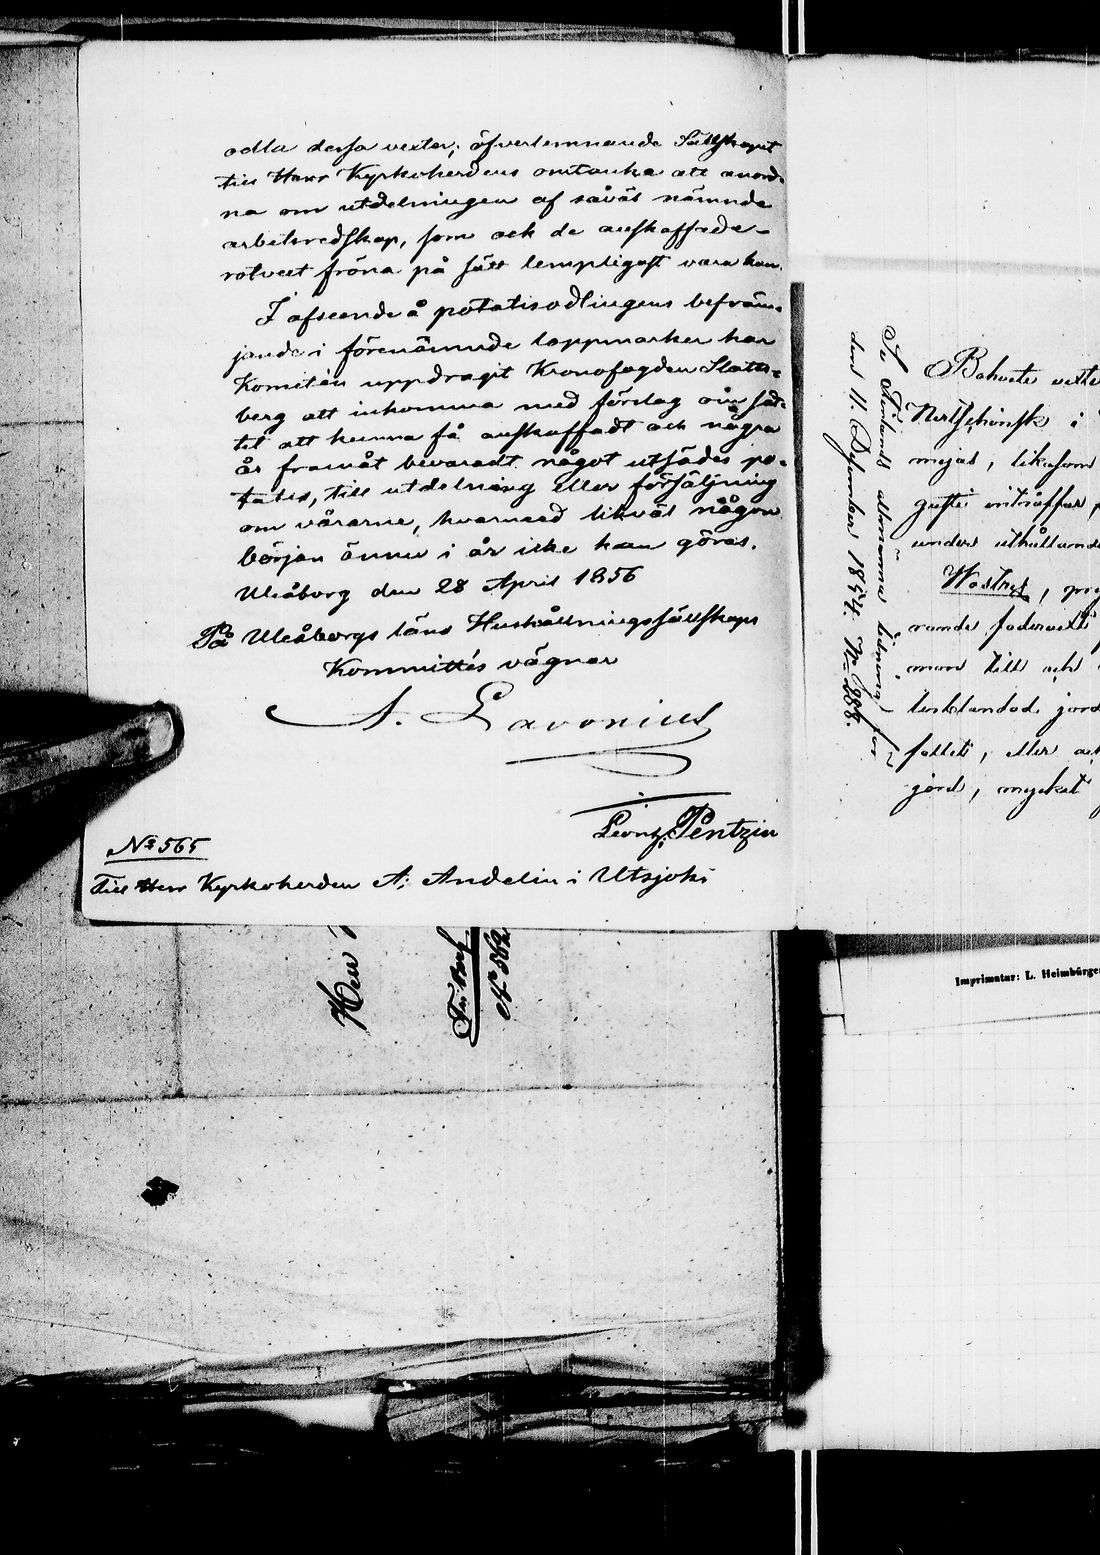 odla dessa vexter; öfverlemnande Sällskapet
till Herr Kyrkoherdens omtanka att anord-
na om utdelningen af såväl nämnde
arbetsredskap, som ock de anskaffade
rotvext fröna på sätt lempligast vara kan.
I afseende å potatisodlingens befräm-
jande i förenämnde lappmarker har
Komitén uppdragit Kronofogden Platts-
berg att inkomma med förslag om sät-
tet att kunna få anskaffadt och några
år framåt bevaradt något utsädes po-
tates, till utdelning eller försäljning
om vårarne, hvarmed likväl någon
början ännu i år icke kan göras.
Uleåborg den 28 April 1856
På Uleåborgs läns Hushållningssällskaps
Kommittés vägnar
A. Lavonius
Leonh. Pentzin
No 565
Till Herr Kyrkoherden A; Andelin i Utsjoki
Herr
No 562
Bohvete
Nertschinsk i
mejat, likasom
inträffar,
under
Wostres,
rande foderväxt
mon till och
jord
fallet, eller
jord, mycket
Se Finlands allmänna tidning för
den 11. December 1854. No 288.
Imprimatur: L. Heimbürger